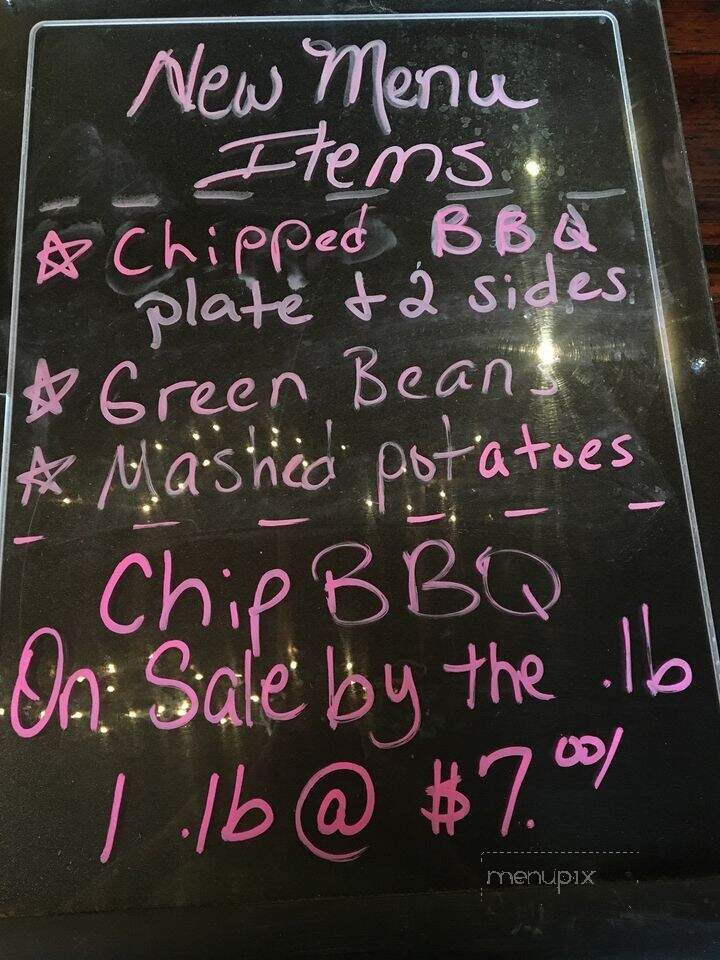 New Menu
Items
☆ Chipped BBQ
plate + 2 sides
☆ Green Beans
☆ Mashed potatoes
Chip BBQ
On Sale by the .lb
1 .lb @ $7.00/
menupix